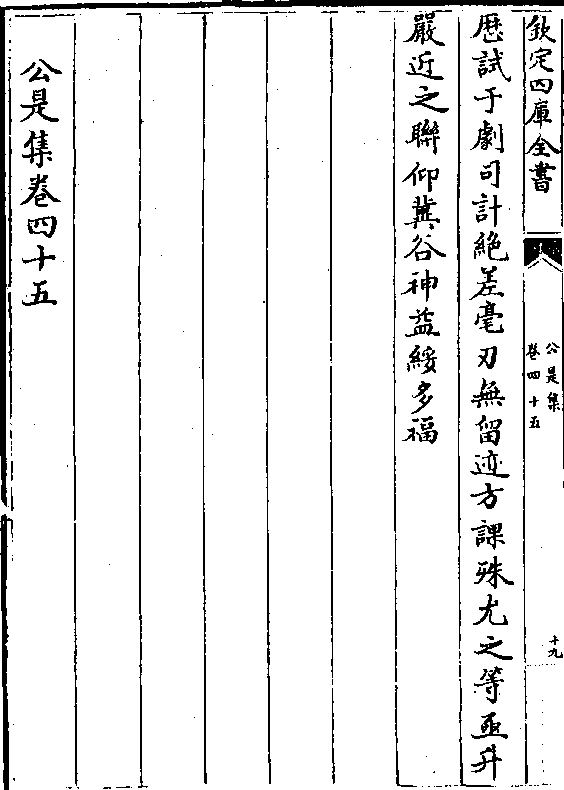 欽定四庫全書
公是集
卷四十五
十九
歴試于劇司計絶差毫刃無留迹方課殊尤之等亟升
嚴近之聯仰冀谷神益綏多福
公是集卷四十五